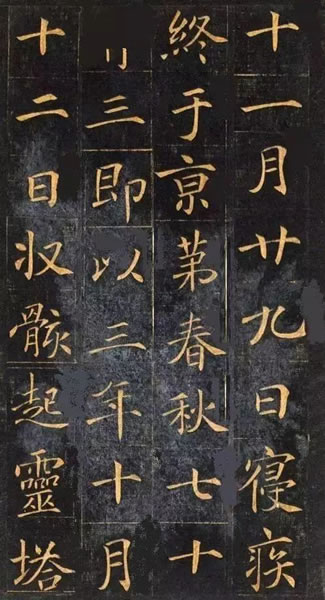 十一月廿九日寑疾
終于亰第春秋七十
三即以三年十月
十二日収骸起靈塔